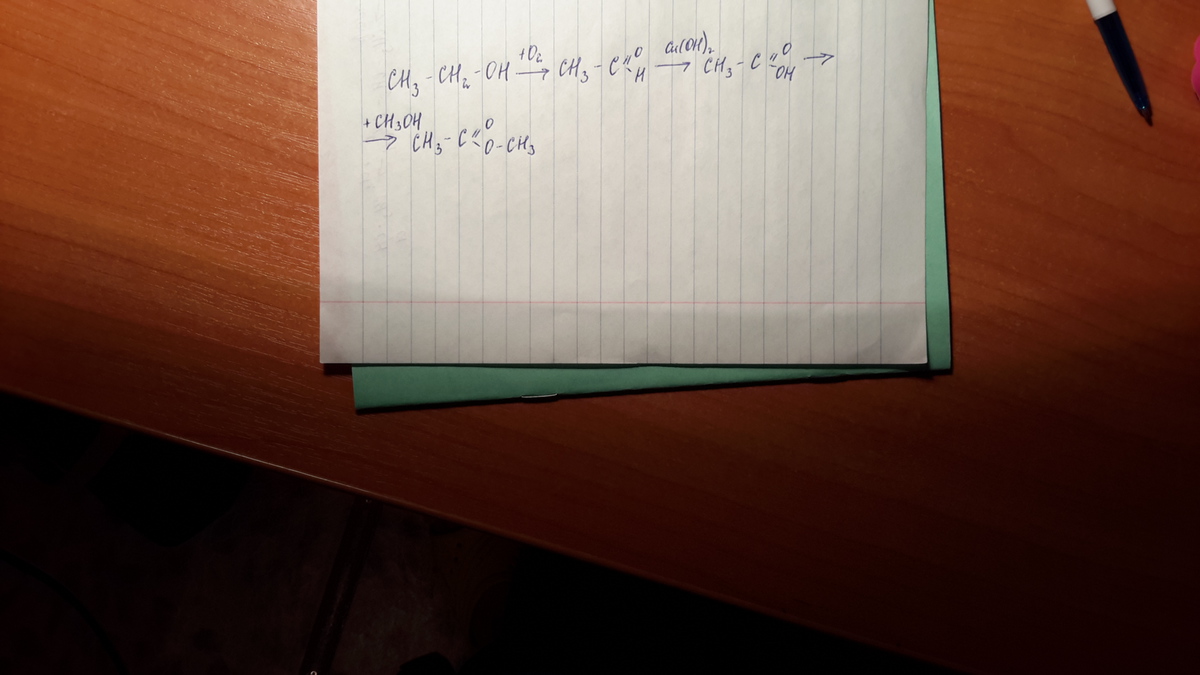 CH₃-CH₂-OH +O₂→ CH₃-C(=O)-H Cu(OH)₂→ CH₃-C(=O)-OH →
+CH₃OH→ CH₃-C(=O)-O-CH₃